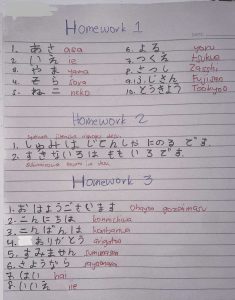 Homework 1
1. あさ asa 6. よる yoru
2. いえ ie 7. つくえ tsukue
3. やま yama 8. ざっし Zasshi
4. そら sora 9. ふじさん Fujisan
5. ねこ neko 10. とうきょう Tookyoo
Homework 2
1. しゅみは じてんしゃ にのる です.
2. すきな いろは ももいろ です.
Homework 3
1. おはようございます Ohayou gozaimasu
2. こんにちは konnichiwa
3. こんばんは konbanwa
4. ありがとう arigatou
5. すみません sumimasen
6. さようなら sayounara
7. はい hai
8. いいえ iie